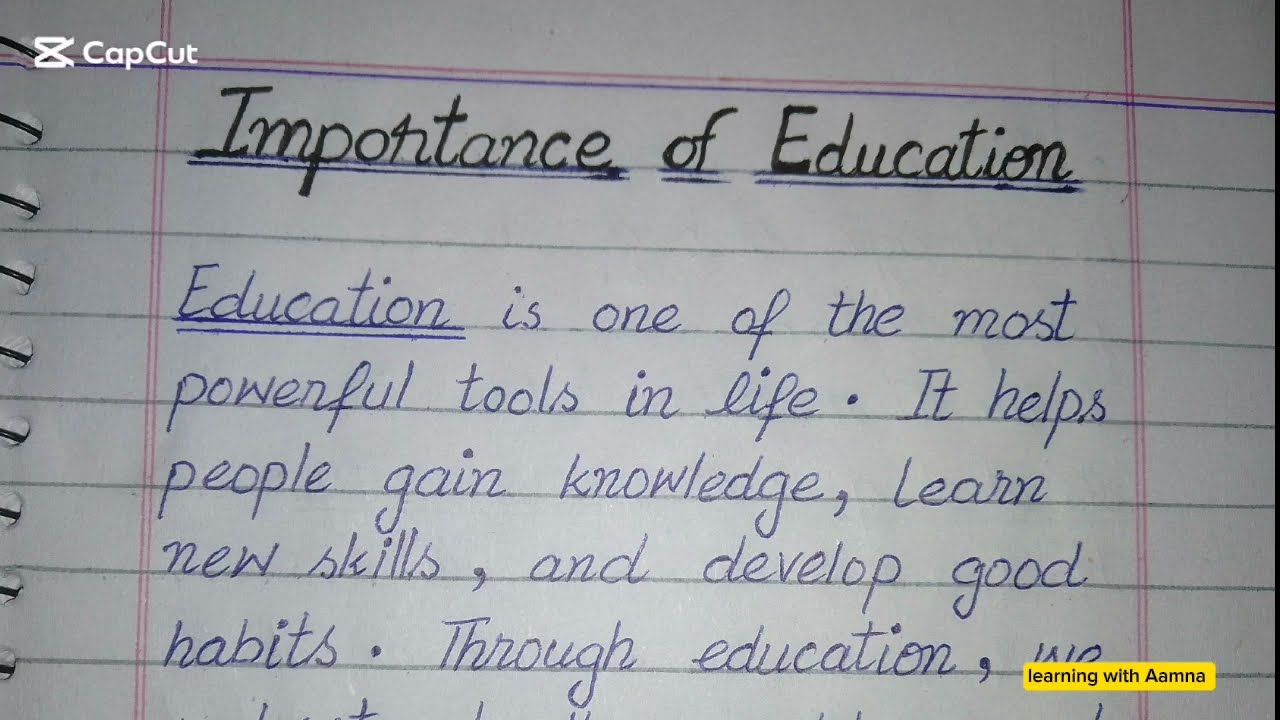 CapCut
Importance of Education
Education is one of the most
powerful tools in life. It helps
people gain knowledge, learn
new skills, and develop good
habits. Through education, we
learning with Aamna